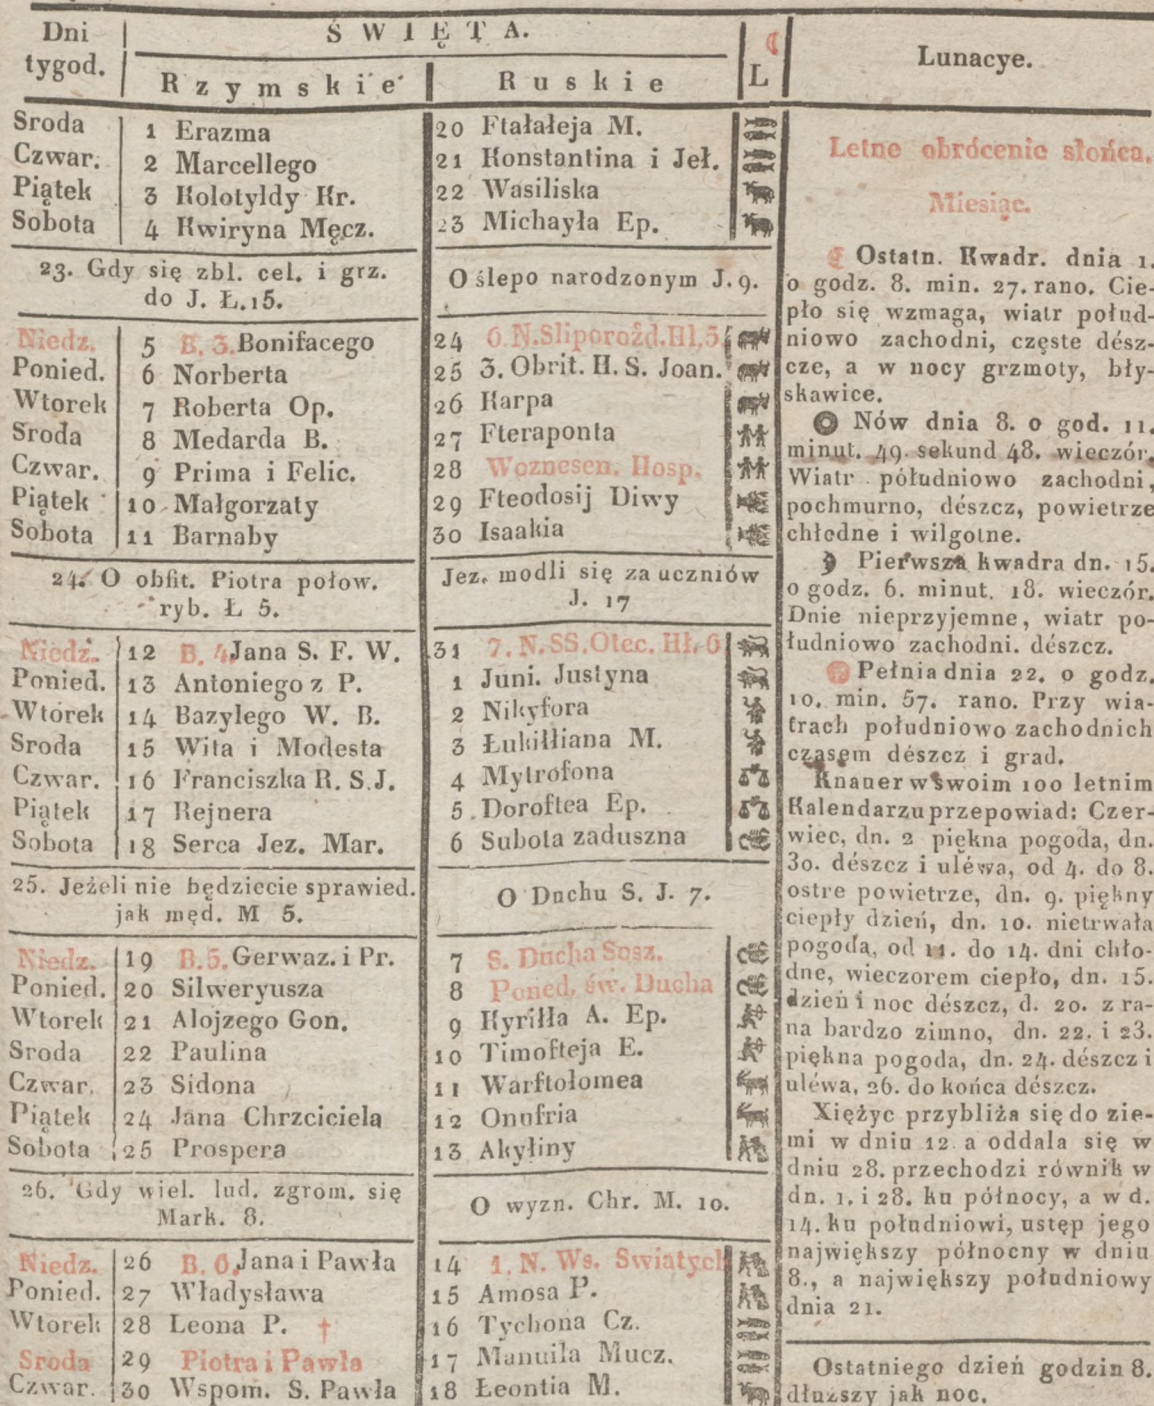 Dni tygod.
ŚWIĘTA.
L
Lunacye.
Rzymskie
Ruskie
Sroda 1 Erazma 20 Ftałałeja M.
Czwar. 2 Marcellego 21 Konstantina i Jeł.
Piątek 3 Kolotyldy Kr. 22 Wasiliska
Sobota 4 Kwiryna Męcz. 23 Michayła Ep.
23. Gdy się zbl. cel. i grz.
do J. Ł.15.
O ślepo narodzonym J. 9.
Niedz. 5 B. 3. Bonifacego 24 6 N.Sliporożd.Hl.5
Ponied. 6 Norberta 25 3. Obrit. H. S. Joan.
Wtorek 7 Roberta Op. 26 Karpa
Sroda 8 Medarda B. 27 Fteraponta
Czwar. 9 Prima i Felic. 28 Woznesen. Hosp.
Piątek 10 Małgorzaty 29 Fteodosij Diwy
Sobota 11 Barnaby 30 Isaakia
24. O obfit. Piotra połow.
ryb. Ł 5.
Jez. modli się za uczniów
J. 17
Niedz. 12 B. 4. Jana S. F. W. 31 7. N.SS.Otec. Hł. 6
Ponied. 13 Antoniego z P. 1 Juni. Justyna
Wtorek 14 Bazylego W. B. 2 Nikyfora
Sroda 15 Wita i Modesta 3 Łukiłliana M.
Czwar. 16 Franciszka R. S.J. 4 Mytrofona
Piątek 17 Rejnera 5 Doroftea Ep.
Sobota 18 Serca Jez. Mar. 6 Subota zaduszna
25. Jeżeli nie będziecie sprawied.
jak męd. M 5.
O Duchu S. J. 7.
Niedz. 19 B.5. Gerwaz. i Pr. 7 S. Ducha Sosz.
Ponied. 20 Silweryusza 8 Poned. św. Ducha
Wtorek 21 Alojzego Gon. 9 Kyriłła A. Ep.
Sroda 22 Paulina 10 Timofteja E.
Czwar. 23 Sidona 11 Warftołomea
Piątek 24 Jana Chrzciciela 12 Onufria
Sobota 25 Prospera 13 Akyłiny
26. Gdy wiel. lud. zgrom. się
Mark. 8.
O wyzn. Chr. M. 10.
Niedz. 26 B. 6. Jana i Pawła 14 1. N. Ws. Swiatych
Ponied. 27 Władysława 15 Amosa P.
Wtorek 28 Leona P. † 16 Tychona Cz.
Sroda 29 Piotra i Pawła 17 Manuila Mucz.
Czwar. 30 Wspom. S. Pawła 18 Łeontia M.
Letne obrócenie słońca.
Miesiąc.
Ostatn. Kwadr. dnia 1.
o godz. 8. min. 27. rano. Cie-
pło się wzmaga, wiatr połud-
niowo zachodni, częste dész-
cze, a w nocy grzmoty, bły-
skawice.
Nów dnia 8. o god. 11.
minut. 49. sekund 48. wieczór.
Wiatr południowo zachodni,
pochmurno, dészcz, powietrze
chłodne i wilgotne.
Pierwsza kwadra dn. 15.
o godz. 6. minut. 18. wieczór.
Dnie nieprzyjemne, wiatr po-
łudniowo zachodni. dészcz.
Pełnia dnia 22. o godz.
10. min. 57. rano. Przy wia-
trach południowo zachodnich
czasem dészcz i grad.
Knauer w swoim 100 letnim
Kalendarzu przepowiad: Czer-
wiec, dn. 2 piękna pogoda, dn.
30. dészcz i uléwa, od 4. do 8.
ostre powietrze, dn. 9. piękny
ciepły dzień, dn. 10. nietrwała
pogoda, od 11. do 14. dni chło-
dne, wieczorem ciepło, dn. 15.
dzień i noc dészcz, d. 20. z ra-
na bardzo zimno, dn. 22. i 23.
piękna pogoda, dn. 24. dészcz i
uléwa, 26. do końca dészcz.
Xiężyc przybliża się do zie-
mi w dniu 12. a oddala się w
dniu 28. przechodzi równik w
dn. 1. i 28. ku północy, a w d.
14. ku południowi, ustęp jego
największy północny w dniu
8., a największy południowy
dnia 21.
Ostatniego dzień godzin 8.
dłuższy jak noc.